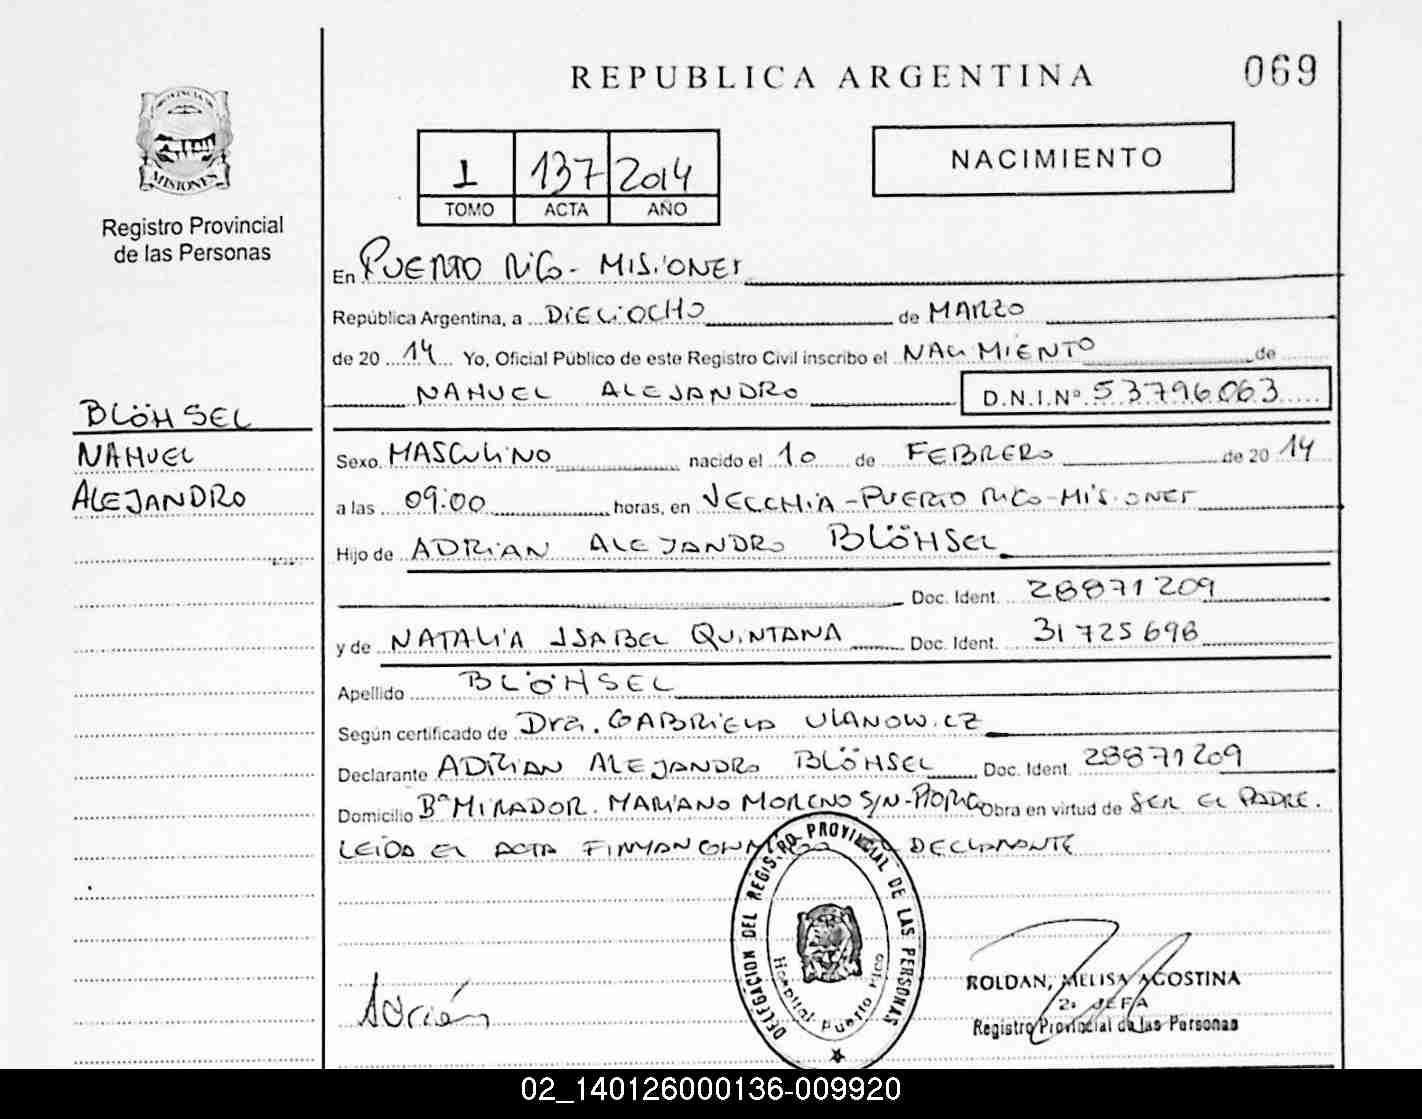 REPUBLICA ARGENTINA
069
PROVINCIA DE
MISIONES
Registro Provincial
de las Personas
1 137 2014
TOMO ACTA AÑO
NACIMIENTO
En PUERTO RICO - MISIONES
República Argentina, a DIECIOCHO de MARZO
de 20 14 Yo, Oficial Público de este Registro Civil inscribo el NACIMIENTO de
NAHUEL ALEJANDRO D.N.I.Nº 53796063
BLÖHSEL
NAHUEL
ALEJANDRO
Sexo MASCULINO nacido el 10 de FEBRERO de 20 14
a las 09:00 horas, en VECCHIA - PUERTO RICO - MISIONES
Hijo de ADRIAN ALEJANDRO BLÖHSEL
Doc. Ident. 28871209
y de NATALIA ISABEL QUINTANA Doc. Ident. 31725698
Apellido BLÖHSEL
Según certificado de Dra. GABRIELA ULANOWICZ
Declarante ADRIAN ALEJANDRO BLÖHSEL Doc. Ident. 28871209
Domicilio Bº MIRADOR. MARIANO MORENO S/N - Obra en virtud de SER EL PADRE.
LEIDA EL ACTA DECLARANTE
DELEGACION DEL REGISTRO PROVINCIAL DE LAS PERSONAS
Hospital Puerto Rico
Adrián
ROLDAN, MELISA AGOSTINA
2º JEFA
Registro Provincial de las Personas
02_140126000136-009920